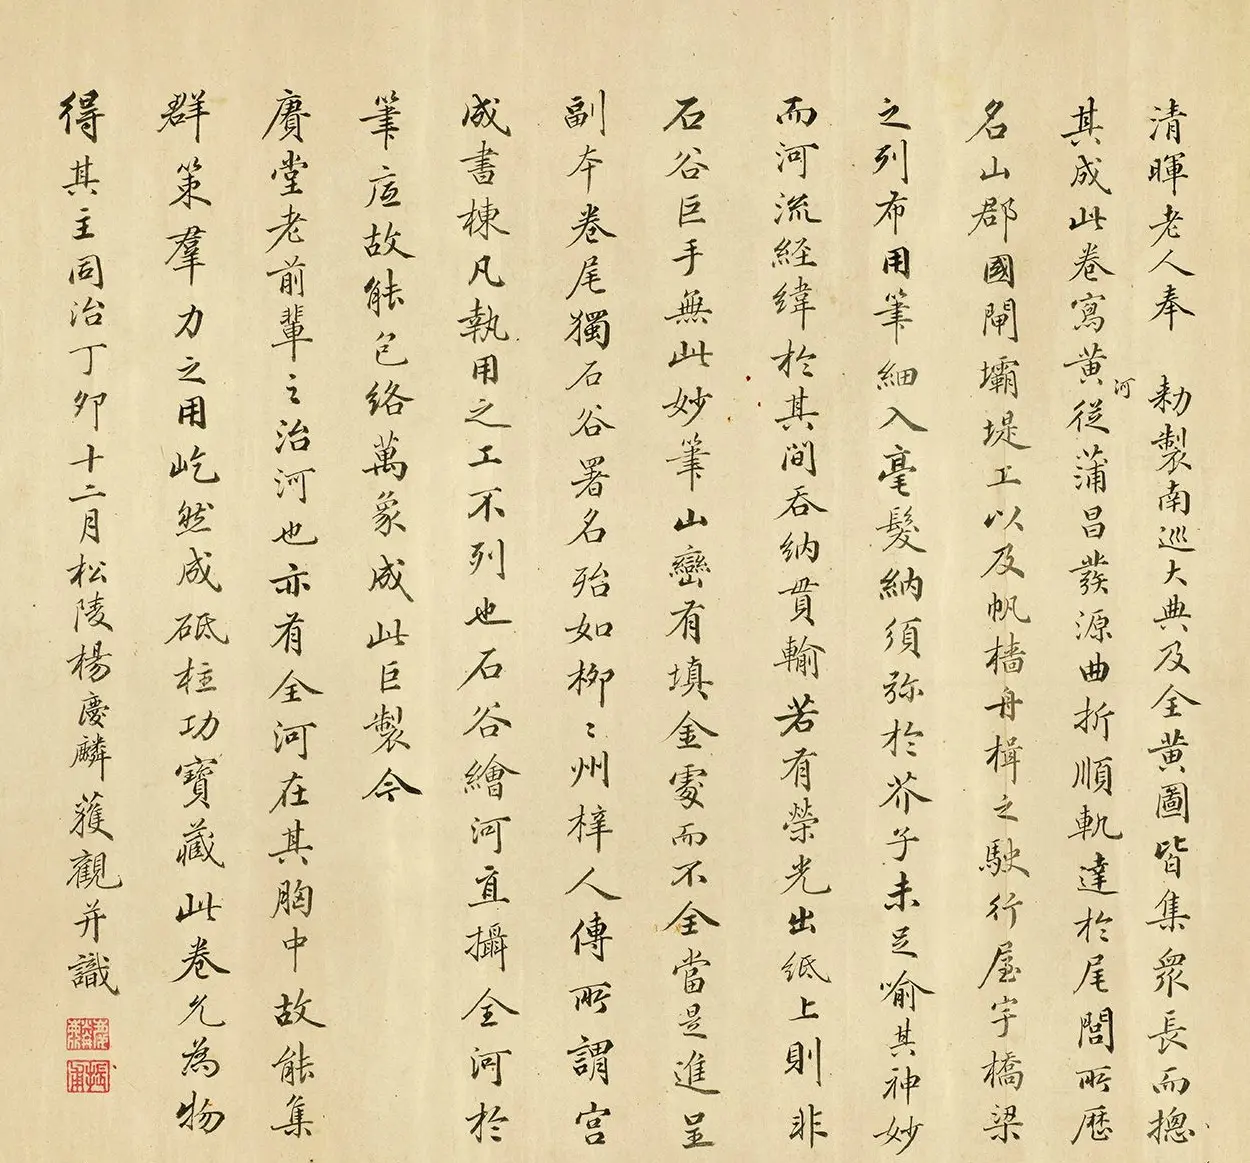 清暉老人奉 勅製南巡大典及全黃圖皆集衆長而摠
其成此卷寫黃河從蒲昌發源曲折順軌達於尾閭所歷
名山郡國閘壩堤工以及帆檣舟楫之駛行屋宇橋梁
之列布用筆細入毫髮納須弥於芥子未足喻其神妙
而河流經緯於其間吞納貫輸若有榮光出紙上則非
石谷巨手無此妙筆山巒有填金處而不全當是進呈
副本卷尾獨石谷署名殆如柳〻州梓人傳所謂宮
成書棟凡執用之工不列也石谷繪河直攝全河於
筆底故能包絡萬象成此巨製今
賡堂老前輩之治河也亦有全河在其胸中故能集
群策羣力之用屹然成砥柱功寶藏此卷允為物
得其主同治丁卯十二月松陵楊慶麟獲觀并識
慶麟
振甫